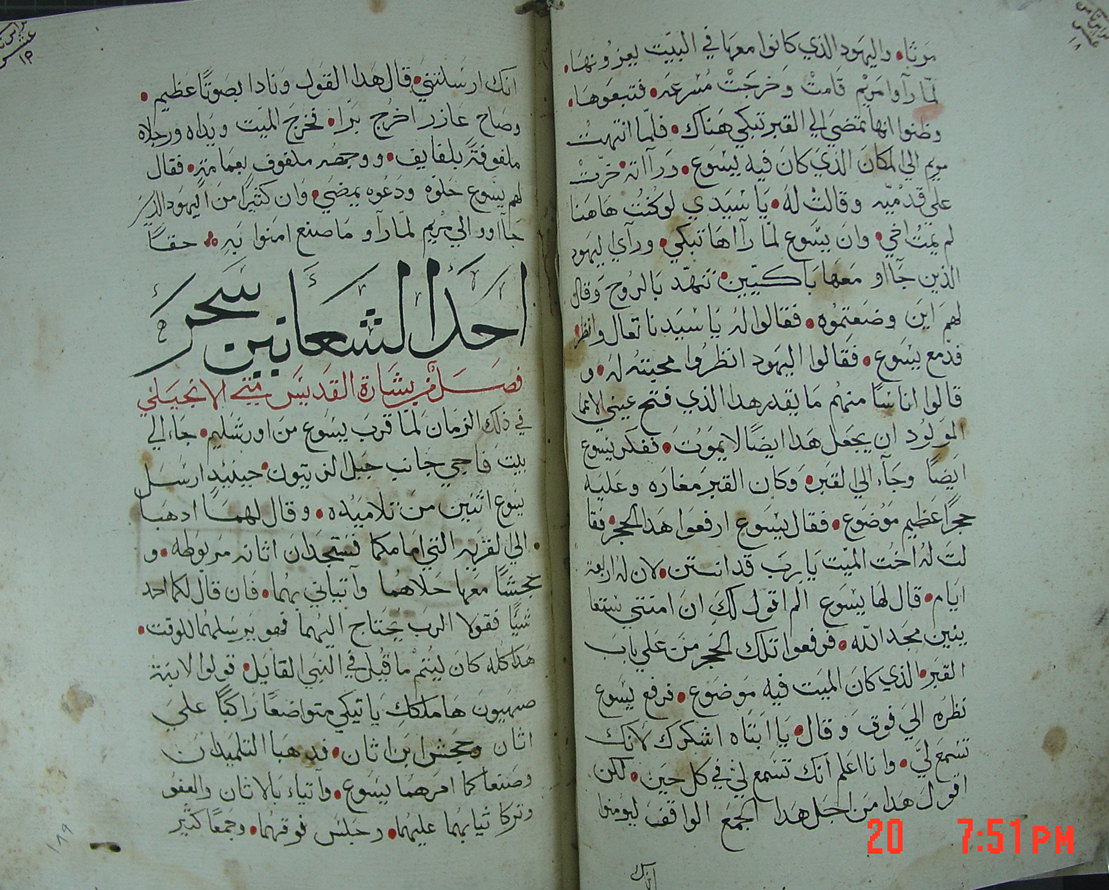 موتا، واليهود الذي كانوا معها في البيت يعزونها،
لما رآوا مريم قامت وخرجت مسرعه، فتبعوها،
وظنوا انها تمضي الي القبر تبكي هناك، فلما انتهت
مريم الي المكان الذي كان فيه يسوع، ورآاته خرت
علي قدميه وقالت له، يا سيدي لو كنت هاهنا
لم يمت اخي، وان يسوع لما رآاها تبكي، ورآي اليهود
الذين جآاو معها باكيين، تنهد بالروح وقال
لهم اين وضعتموه، فقالوا له يا سيدنا تعال وانظر
فدمع يسوع، فقالوا اليهود انظروا محبته له، و
قالوا اناسا منهم ما يقدر هذا الذي فتح عيني الاعما
المولود ان يجعل هدا ايضا لا يموت، ففكر يسوع
ايضا وجآء الي القبر، وكان القبر مغاره وعليه
حجرا عظيم موضوع، فقال يسوع ارفعوا هدا الحجر، فقا
لت له اخت الميت يا رب قد انتن، لان له اربعة
ايام، قال لها يسوع الم اقول لك ان امنتي ستعا
يئين مجد الله، فرفعوا تلك الحجر من علي باب
القبر، الذي كان الميت فيه موضوع، فرفع يسوع
نظره الي فوق وقال، يا ابتاه اشكرك لانك
تسمع لي، وانا اعلم انك تسمع لي في كل حين، لكن
اقول هدا من اجل هدا الجمع الواقف ليومنوا
انك
انك ارسلتني، قال هدا القول ونادا بصوتا عظيم،
وصاح عازر اخرج برا، فخرج الميت ويداه ورجلاه
ملفوفة بلفايف، ووجهه ملفوف بعمامة، فقال
لهم يسوع حلوه ودعوه يمضي، وان كثيرا من اليهود الذين
جآاوو الي مريم لما رآو ما صنع امنوا به، حقا
احد الشعانين سحر
فصل من بشارة القديس متي الانجيلي
في ذلك الزمان لما قرب يسوع من اورشليم، جاء الي
بيت فاجي جانب جبل الزيتون، حينيد ارسل
يسوع اثنين من تلاميده، وقال لهما ادهبا
الي القريه التي امامكما فستجدان اتانه مربوطه، و
جحشا معها حلاهما وآتياني بهما، فان قال لكما احد
شيا فقولا الرب يحتاج اليهما فهو يرسلهما للوقت،
هدا كله كان ليتم ما قيل في النبي القايل، قولوا لابنة
صهيون ها ملكك ياتيكي متواضعا راكبا علي
اتان وجحش ابن اتان، فدهبا التلميدان
وصنعا كما امرهما يسوع، وآتياء بالاتان والعفو
وتركا تيابهما عليهما، وجلس فوقهما، وجمعا كثير
١٨٩
20 7:51 PM